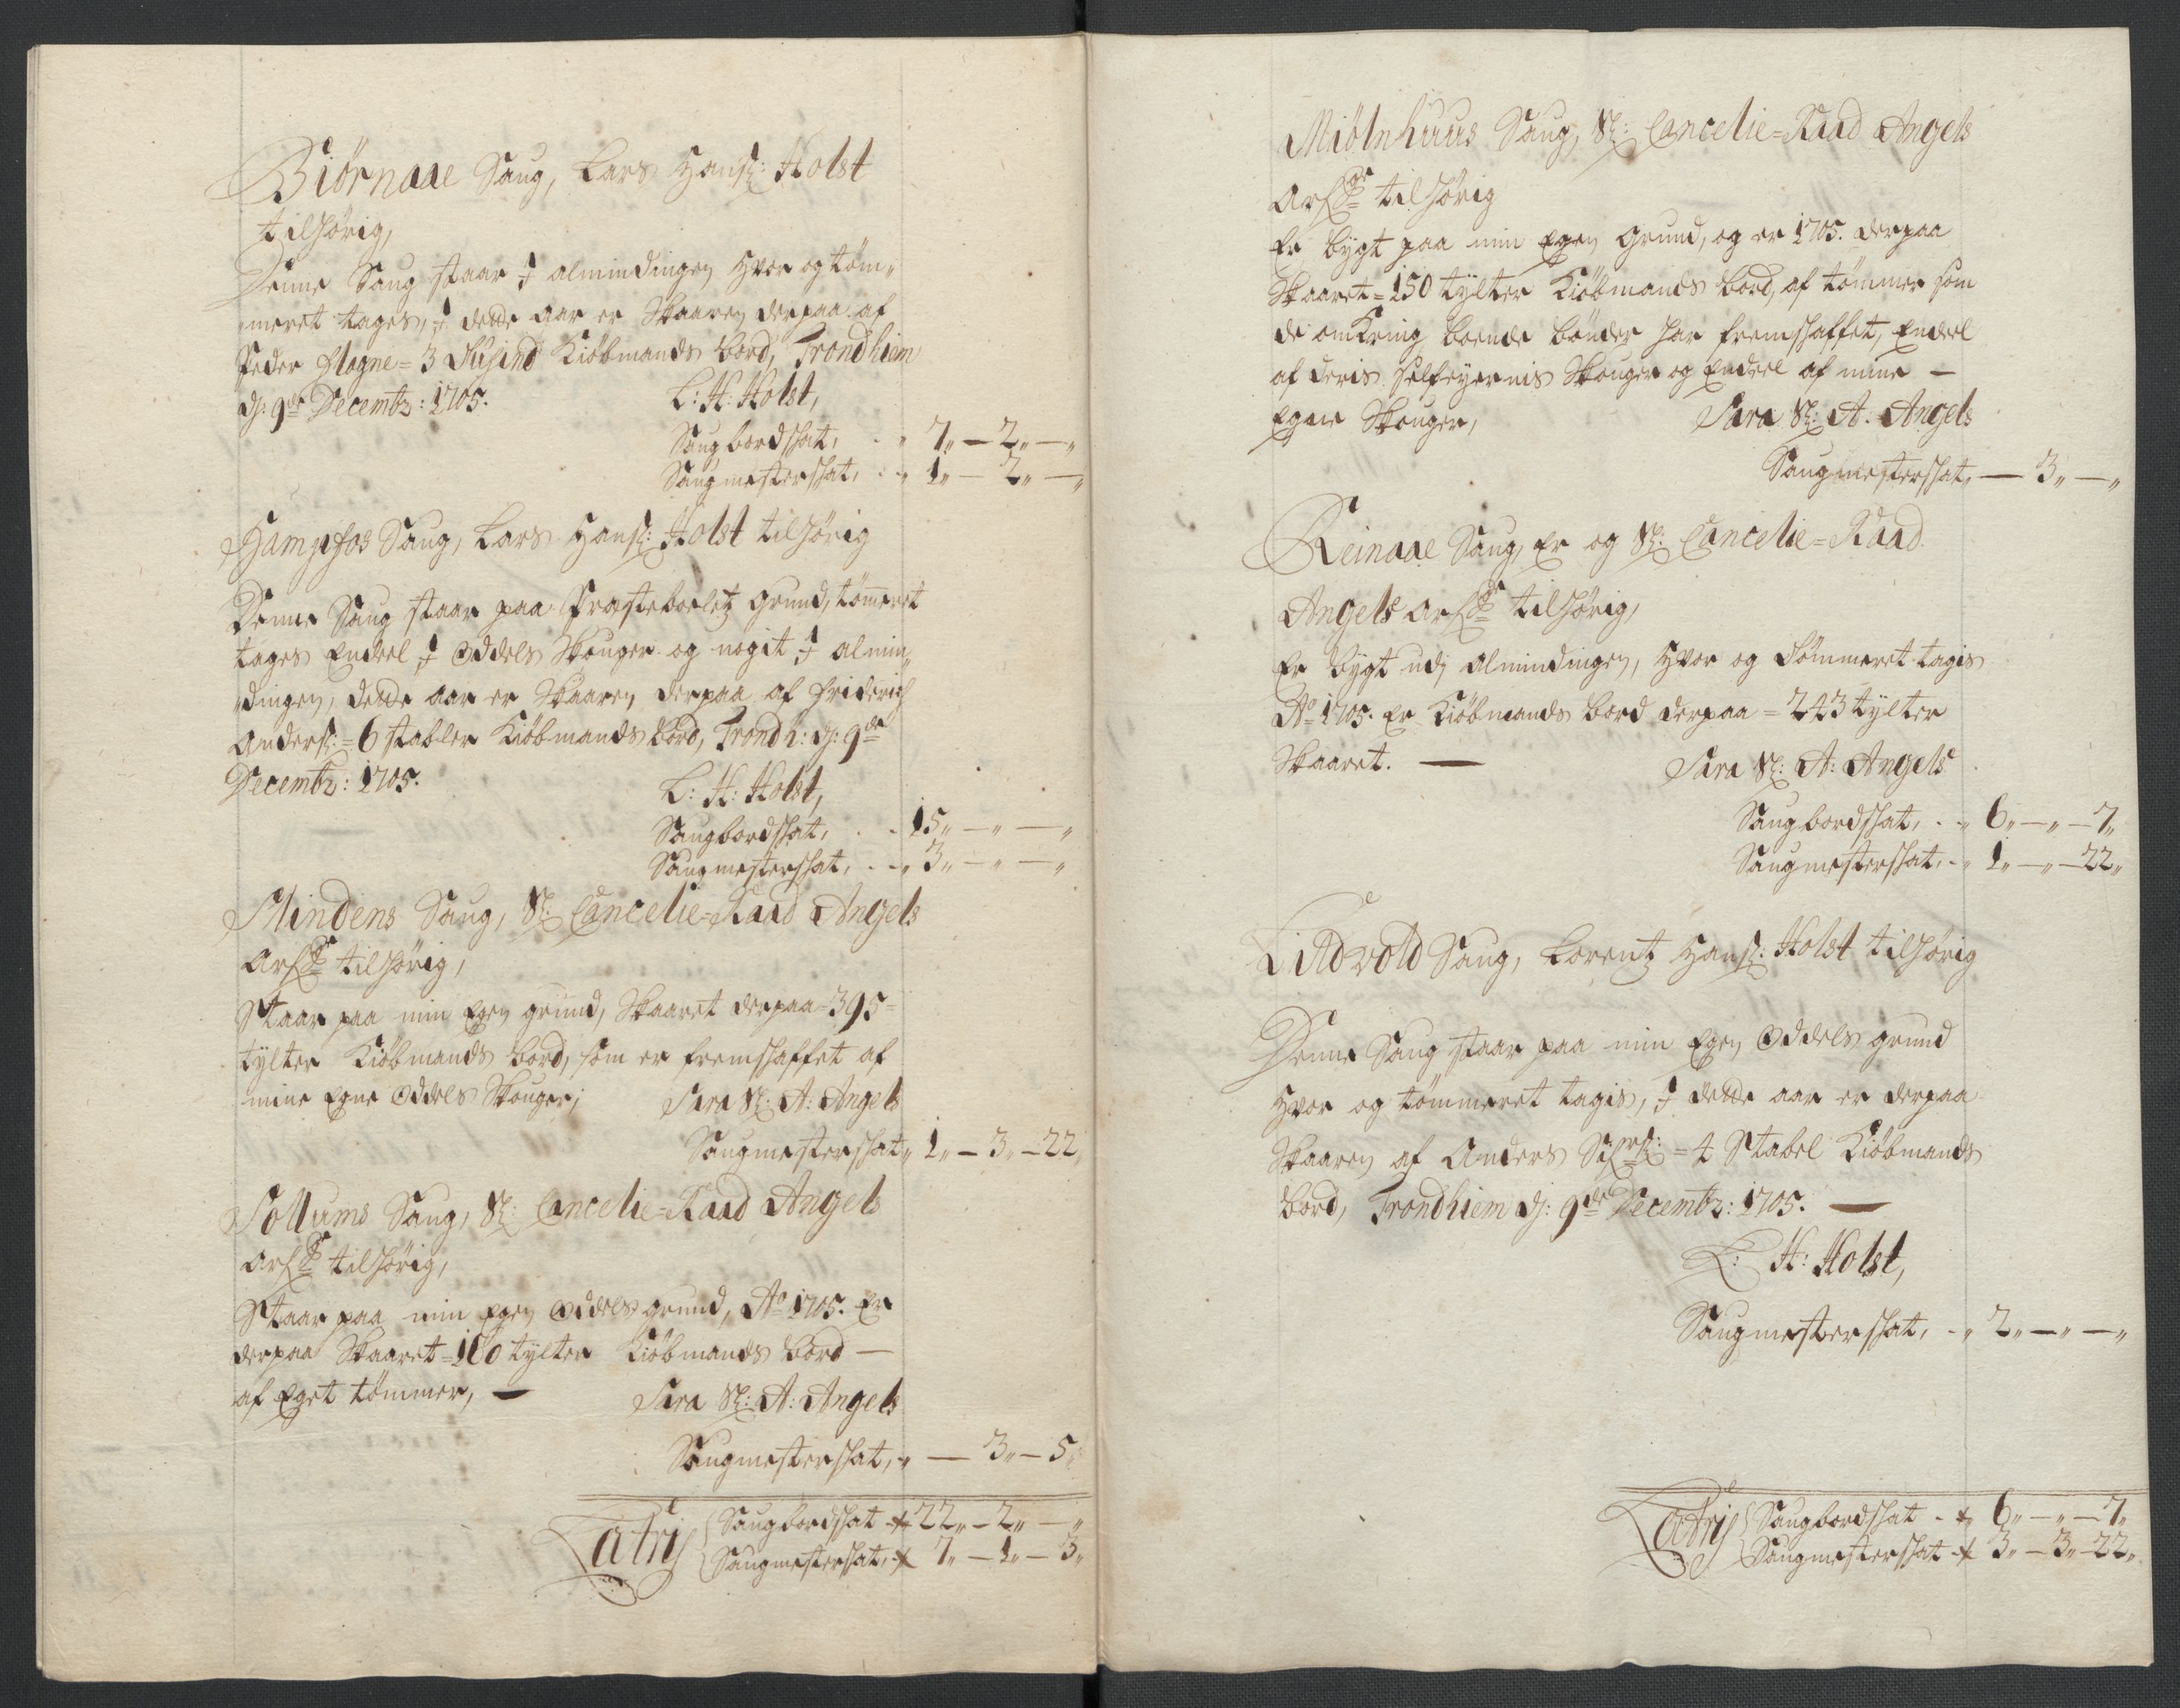 Biørnaae Saug, Lars Hanſ: Holst
tilhørig,
Denne Saug staar J almindingen hvor og töm„
meret tages, J dette aar er Skaaren derpaa af
Peder Hogne= 3 Tusind Kiöbmands bord, Trondhiem
dj: 9de Decembr: 1705. L: H: Holst,
Saugbordskat, 7„ — 2„ — „
Saugmesterskat, 1„ — 2„ — „
Hampfos Saug, Lars Hanſ: Holst tilhörig
Denne Saug staar paa Præsteboeletz grund, tömeret
tages Endeel J Oddels Skouger og nogit J almin„
dingen, dette aar er Skaaren derpaa af Friderich
Anderſ:= 6 stabler Kiöbmands bord, Trondh: dj: 9de
Decembr: 1705. L: H: Holst,
Saugbordskat, 15„ — „ — „
Saugmesterskat, 3„ — „ — „
Mindens Saug, Sl: Cancelie=Raad Angels
Arf: tilhörig,
Staar paa min Egen grund, Skaaret derpaa =395=
tylter Kiöbmands bord, som er fremskaffet af
mine Egne Oddels Skouger; Sara Sl: A: Angels
Saugmesterskat, 1„ — 3„ — 22„
Sollums Saug, Sl: Cancelie=Raad Angels
Arf: tilhörig,
Staar paa min Egen Oddels grund, Ao 1705. Er
derpaa Skaaret =160 tylter Kiöbmands bord —
af Eget tömmer, — Sara Sl: A: Angels
Saugmesterskat, „ — 3„ — 5„
Latris Saugbordskat 22„ — 2„ — „
Saugmesterskat, 7„ — 1„ — 3„
Miölnhuus Saug, Sl: Cancelie=Raad Angels
Arf: tilhörig
Er bygt paa min Egen Grund, og er 1705. derpaa
Skaaret= 150 tylter Kiöbmands bord, af tömmer som
de omkring boende bönder har fremskaffet, Endeel
af deris Selfeyernis Skouger og Endeel af mine —
Egne Skouger, Sara Sl: A. Angels
Saugmesterskat, — 3„ — „
Reinaae Saug, Er og Sl: Cancelie=Raad
Angels Arf: tilhörig,
Er bygt udj Almindingen, hvor og Tömmeret tagis
Ao 1705. Er Kiöbmands bord derpaa = 243 tylter
Skaaret. — Sara Sl: A: Angels
Saugbordskat, 6„ — „ — 7„
Saugmesterskat, 1„ — „ — 22„
Lidvold Saug, Lorentz Hanſ: Holst tilhörig
Denne Saug staar paa min Egen Oddels grund
hvor og tömmeret tagis, J dette aar er derpaa
Skaaren af Anders = 4 Stabel Kiöbmands
bord, Trondhiem dj: 9de Decembr: 1705. —
L: H: Holst,
Saugmesterskat, 2„ — „ — „
Latris Saugbordskat 6„ — „ — 7„
Saugmesterskat 3„ — 3„ — 22„